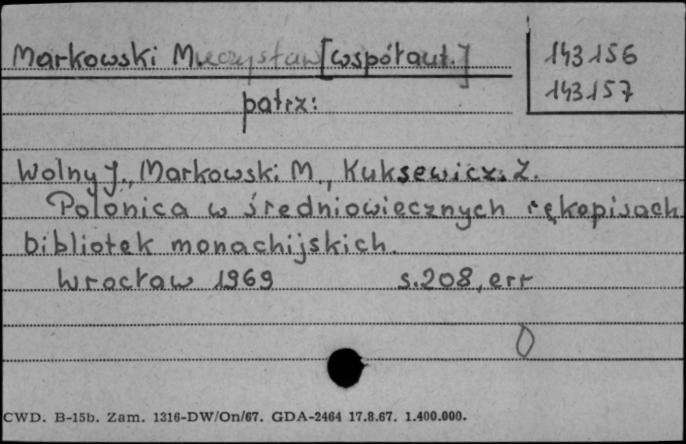 Markowski Mieczysław [współaut.]
143156
143157
patrz:
Wolny J., Markowski M., Kuksewicz Z.
Polonica w średniowiecznych rękopisach
bibliotek monachijskich.
Wrocław 1969 s.208, err
0
CWD. B-15b. Zam. 1316-DW/On/67. GDA-2464 17.8.67. 1.400.000.